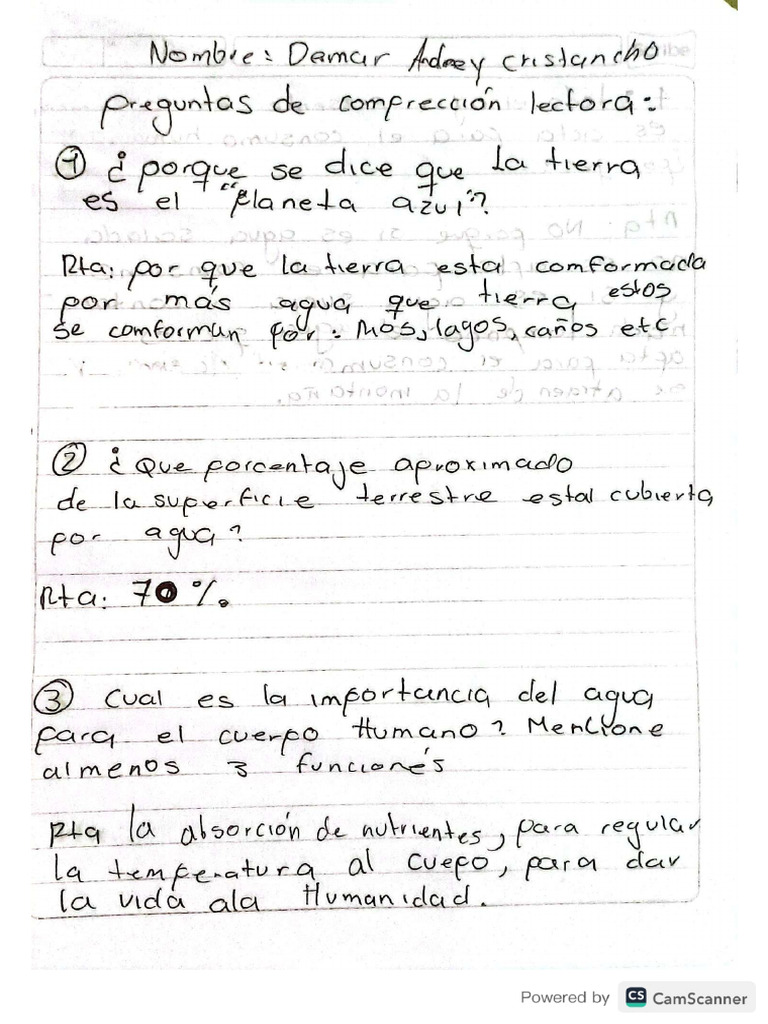 Nombre: Damar Andrey cristancho
preguntas de comprección lectora:
① ¿porque se dice que la tierra
es el "planeta azul"?
Rta: por que la tierra esta comformada
por más agua que tierra estos
se comforman por: Mos, lagos, caños etc
② ¿Que porcentaje aproximado
de la superficie terrestre estal cubierta
por agua?
Rta: 70%.
③ cual es la importancia del agua
para el cuerpo Humano? Mencione
almenos 3 funciones
Rta la absorción de nutrientes, para regular
la temperatura al cuepo, para dar
la vida ala Humanidad.
Powered by CS CamScanner